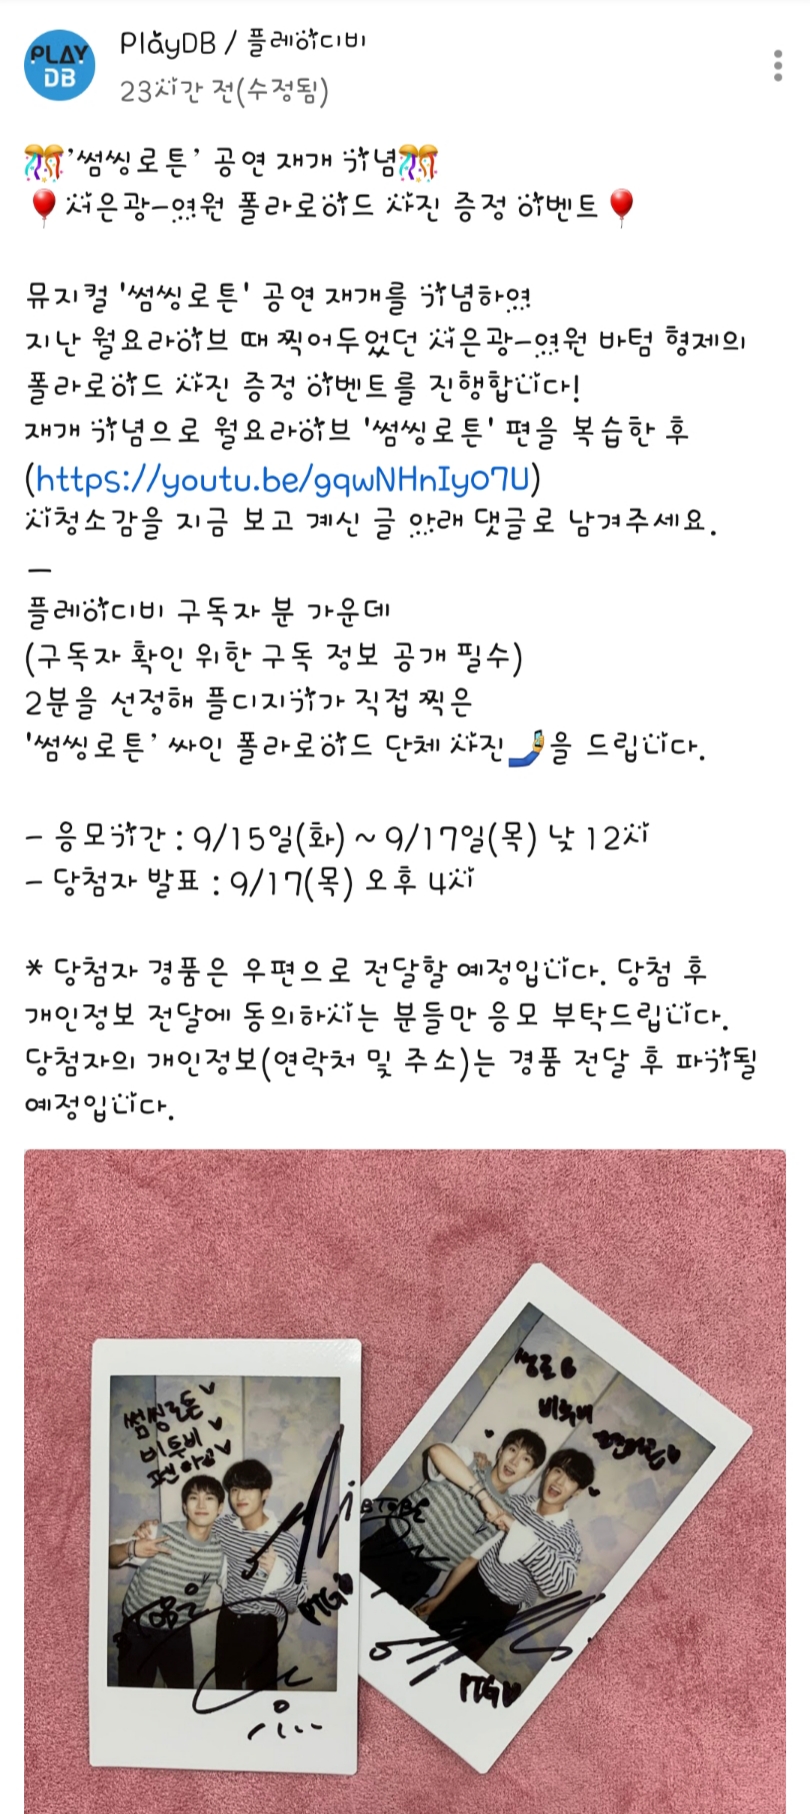 PLAY
DB
PlayDB / 플레이디비
23시간 전(수정됨)
🎊'썸씽로튼' 공연 재개 기념🎊
🎈서은광-여원 폴라로이드 사진 증정 이벤트🎈
뮤지컬 '썸씽로튼' 공연 재개를 기념하여
지난 월요라이브 때 찍어두었던 서은광-여원 바텀 형제의
폴라로이드 사진 증정 이벤트를 진행합니다!
재개 기념으로 월요라이브 '썸씽로튼' 편을 복습한 후
(https://youtu.be/gqwNHnIyo7U)
시청소감을 지금 보고 계신 글 아래 댓글로 남겨주세요.
—
플레이디비 구독자 분 가운데
(구독자 확인 위한 구독 정보 공개 필수)
2분을 선정해 플디지기가 직접 찍은
'썸씽로튼' 싸인 폴라로이드 단체 사진🤳을 드립니다.
- 응모기간 : 9/15일(화) ~ 9/17일(목) 낮 12시
- 당첨자 발표 : 9/17(목) 오후 4시
* 당첨자 경품은 우편으로 전달할 예정입니다. 당첨 후
개인정보 전달에 동의하시는 분들만 응모 부탁드립니다.
당첨자의 개인정보(연락처 및 주소)는 경품 전달 후 파기될
예정입니다.
썸씽로튼♥
비투비♥
펜타곤♥
PTG♥
썽로
비투비
BTOB
PTG♥